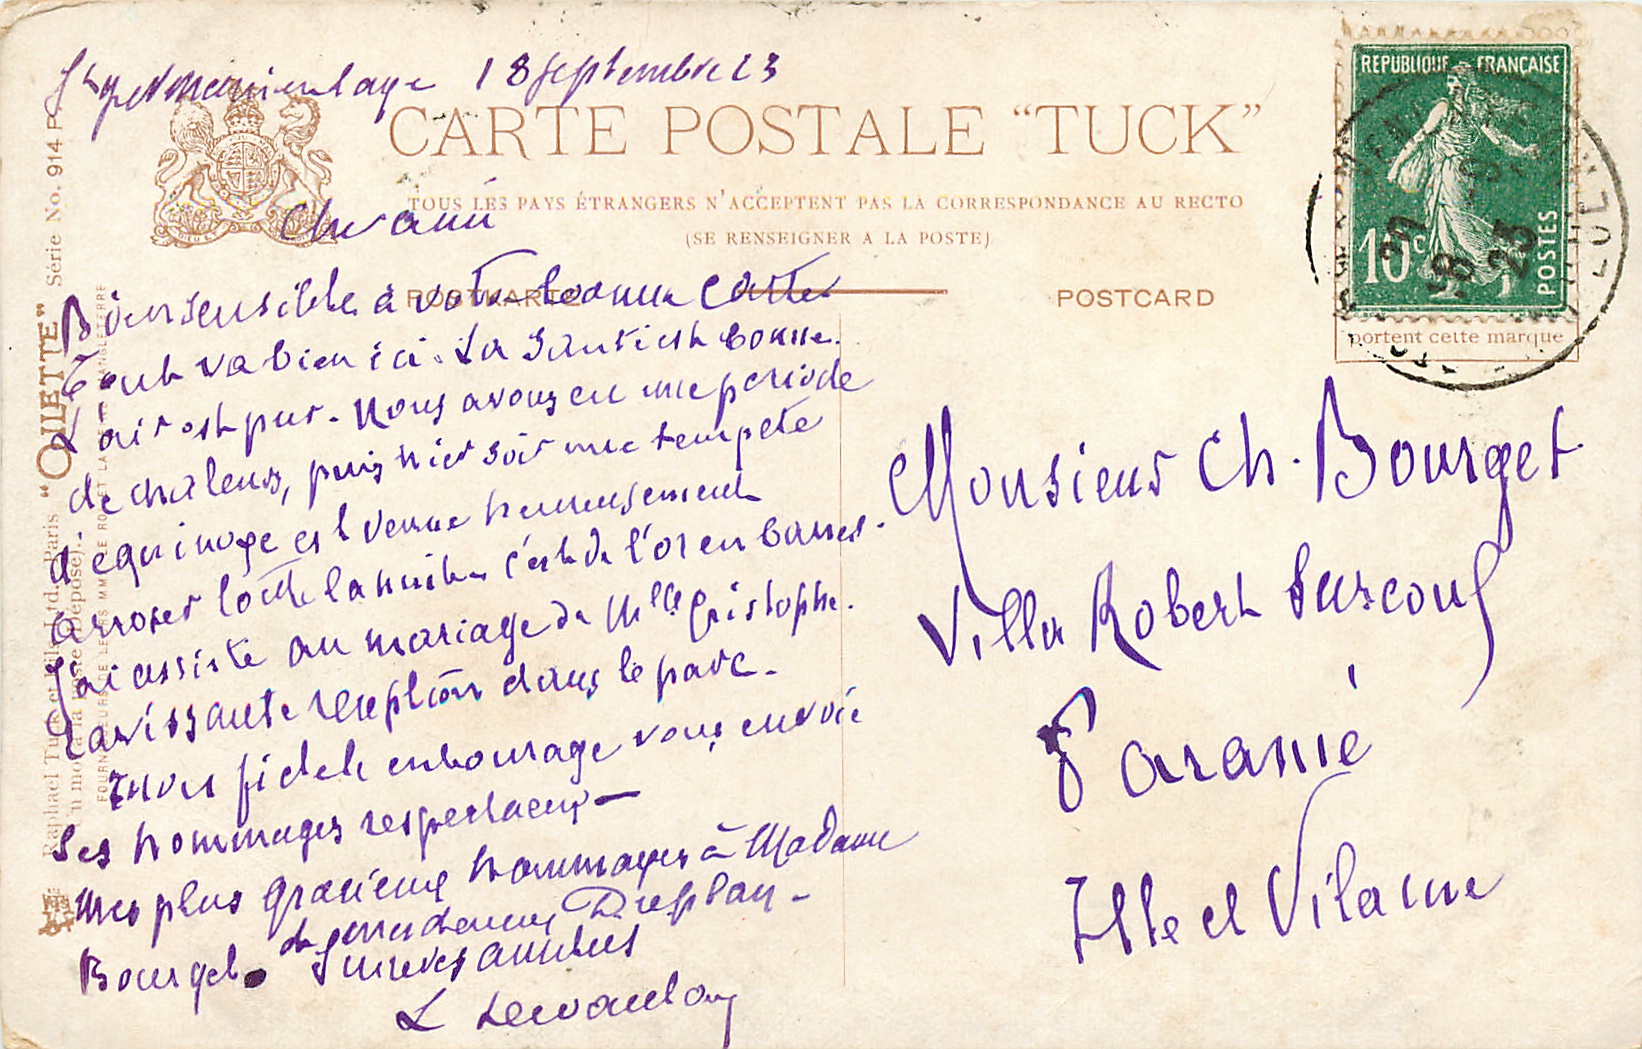 St Germain en Laye 18 septembre 23
CARTE POSTALE "TUCK"
TOUS LES PAYS ÉTRANGERS N'ACCEPTENT PAS LA CORRESPONDANCE AU RECTO
(SE RENSEIGNER A LA POSTE)
POSTKARTE
POSTCARD
Cher ami
Bien sensible à votre bonne carte
Tout va bien ici. La santé est bonne.
L'air est pur. Nous avons eu une période
de chaleurs, puis hier soir une tempête
d'equinoxe est venue heureusement
arroser toute la nuit c'est de l'or en barres.
J'ai assisté au mariage de Mlle Cristophe.
Ravissante réception dans le parc.
Mon fidele entourage vous envoie
ses hommages respectueux
Mes plus gracieux hommages à Madame
Bourget.
Sincères amitiés
REPUBLIQUE FRANÇAISE
10c
POSTES
portent cette marque
Monsieur Ch. Bourget
Villa Robert Surcouf
Paramé
Ille et Vilaine
"OILETTE" Série No. 914 P
Raphael Tuck et Fils, Ltd., Paris